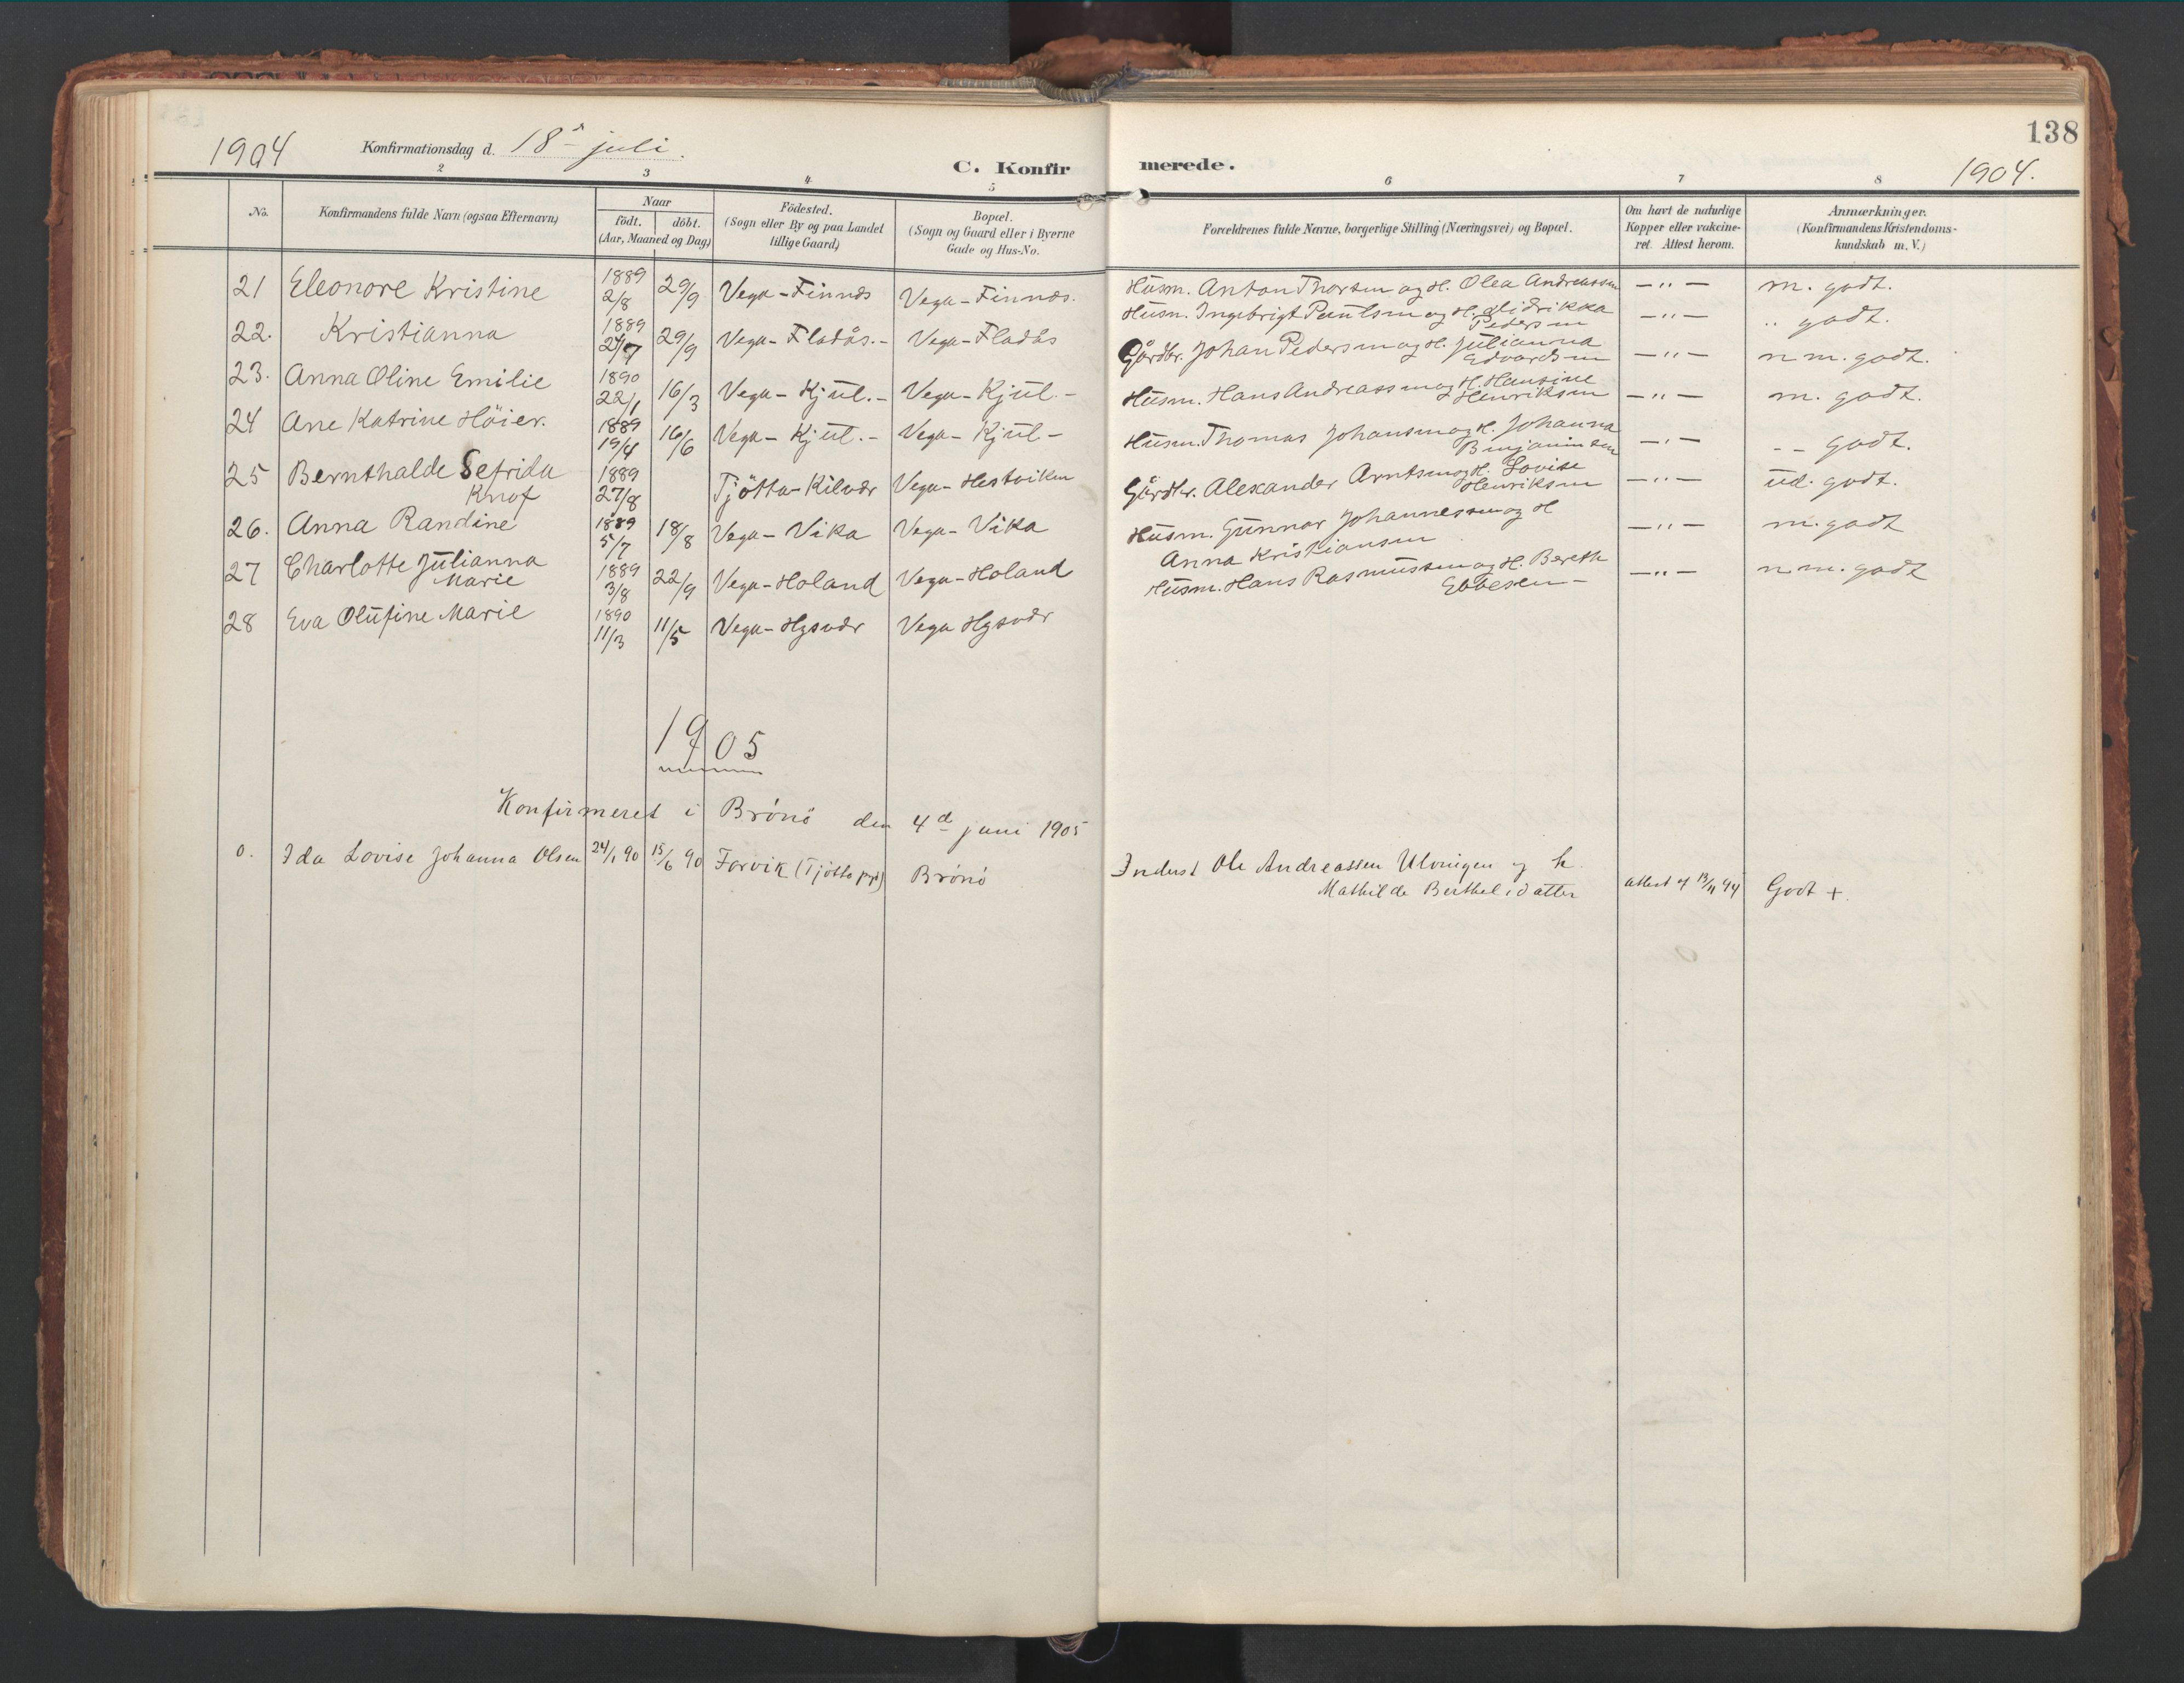 1904 Konfirmationsdag d. 18d juli.
C. Konfir merede.
138
1904.
2 3 4 5 6 7 8
No. Konfirmandens fulde Navn (ogsaa Efternavn) Naar Födested. Bopæl. Forældrenes fulde Navne, borgerlige Stilling (Næringsvei) og Bopæl. Om havt de naturlige Anmærkninger.
födt. döbt. (Sogn eller By og paa Landet (Sogn og Gaard eller i Byerne Kopper eller vakcine- (Konfirmandens Kristendoms-
(Aar, Maaned og Dag) tillige Gaard) Gade og Hus-No. ret. Attest herom. kundskab m. V.)
21 Eleonore Kristine 1889 2/8 29/9 Vega-Finnæs Vega-Finnæs. Husm. Anton Thorsen og H. Olea Andreassen —„— m. godt.
22. Kristianna 1889 29/9 Vega-Fladås.- Vega-Fladås Husm. Ingebrigt Paulsen og H. Didrikka Pedersen —„— „ godt.
23. Anna Oline Emilie 1890 22/1 16/3 Vega-Kjul.- Vega-Kjul.- Gårdbr. Johan Pedersen og H. Julianna Edvardsen —„— n m. godt.
24 Ane Katrine Höier. 1889 19/4 16/6 Vega-Kjul.- Vega-Kjul- Husm. Hans Andreassen og H. Hansine Henriksen —„— m. godt.
25 Bernthalde Sefrida Knof 1889 27/8 Tjötta-Kilvær Vega-Hestviken Husm. Thomas Johansen og H. Johanna Benjaminsen —„— -- godt.
26. Anna Randine 1889 5/7 18/8 Vega-Vika Vega-Vika Gårdbr. Alexander Arntsen og H. Lovise Henriksen —„— ud. godt.
27 Charlotte Julianna Marie 1889 3/8 22/9 Vega-Holand Vega-Holand Husm. Gunnar Johannessen og H Anna Kristiansen —„— m. godt
28 Eva Olufine Marie 1890 11/3 11/5 Vega-Hysvær Vega Hysvær Husm. Hans Rasmussen og H. Bereth Ebbesen — —„— n m. godt
1905
Konfirmeret i Brönö den 4d juni 1905
0. Ida Lovise Johanna Olsen 24/1 90 15/6 90 Forvik (Tjötto pgd) Brönö Inderst Ole Andreassen Ulvingen og h. Mathilde Berthelsdatter attest af 13/11 94 Godt +.